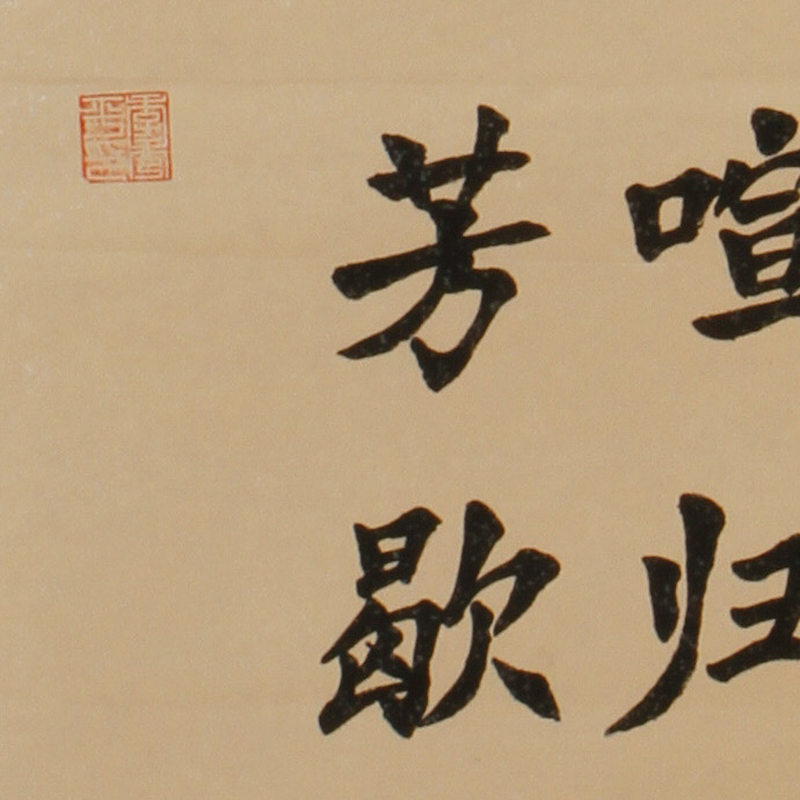 喧归
芳歇